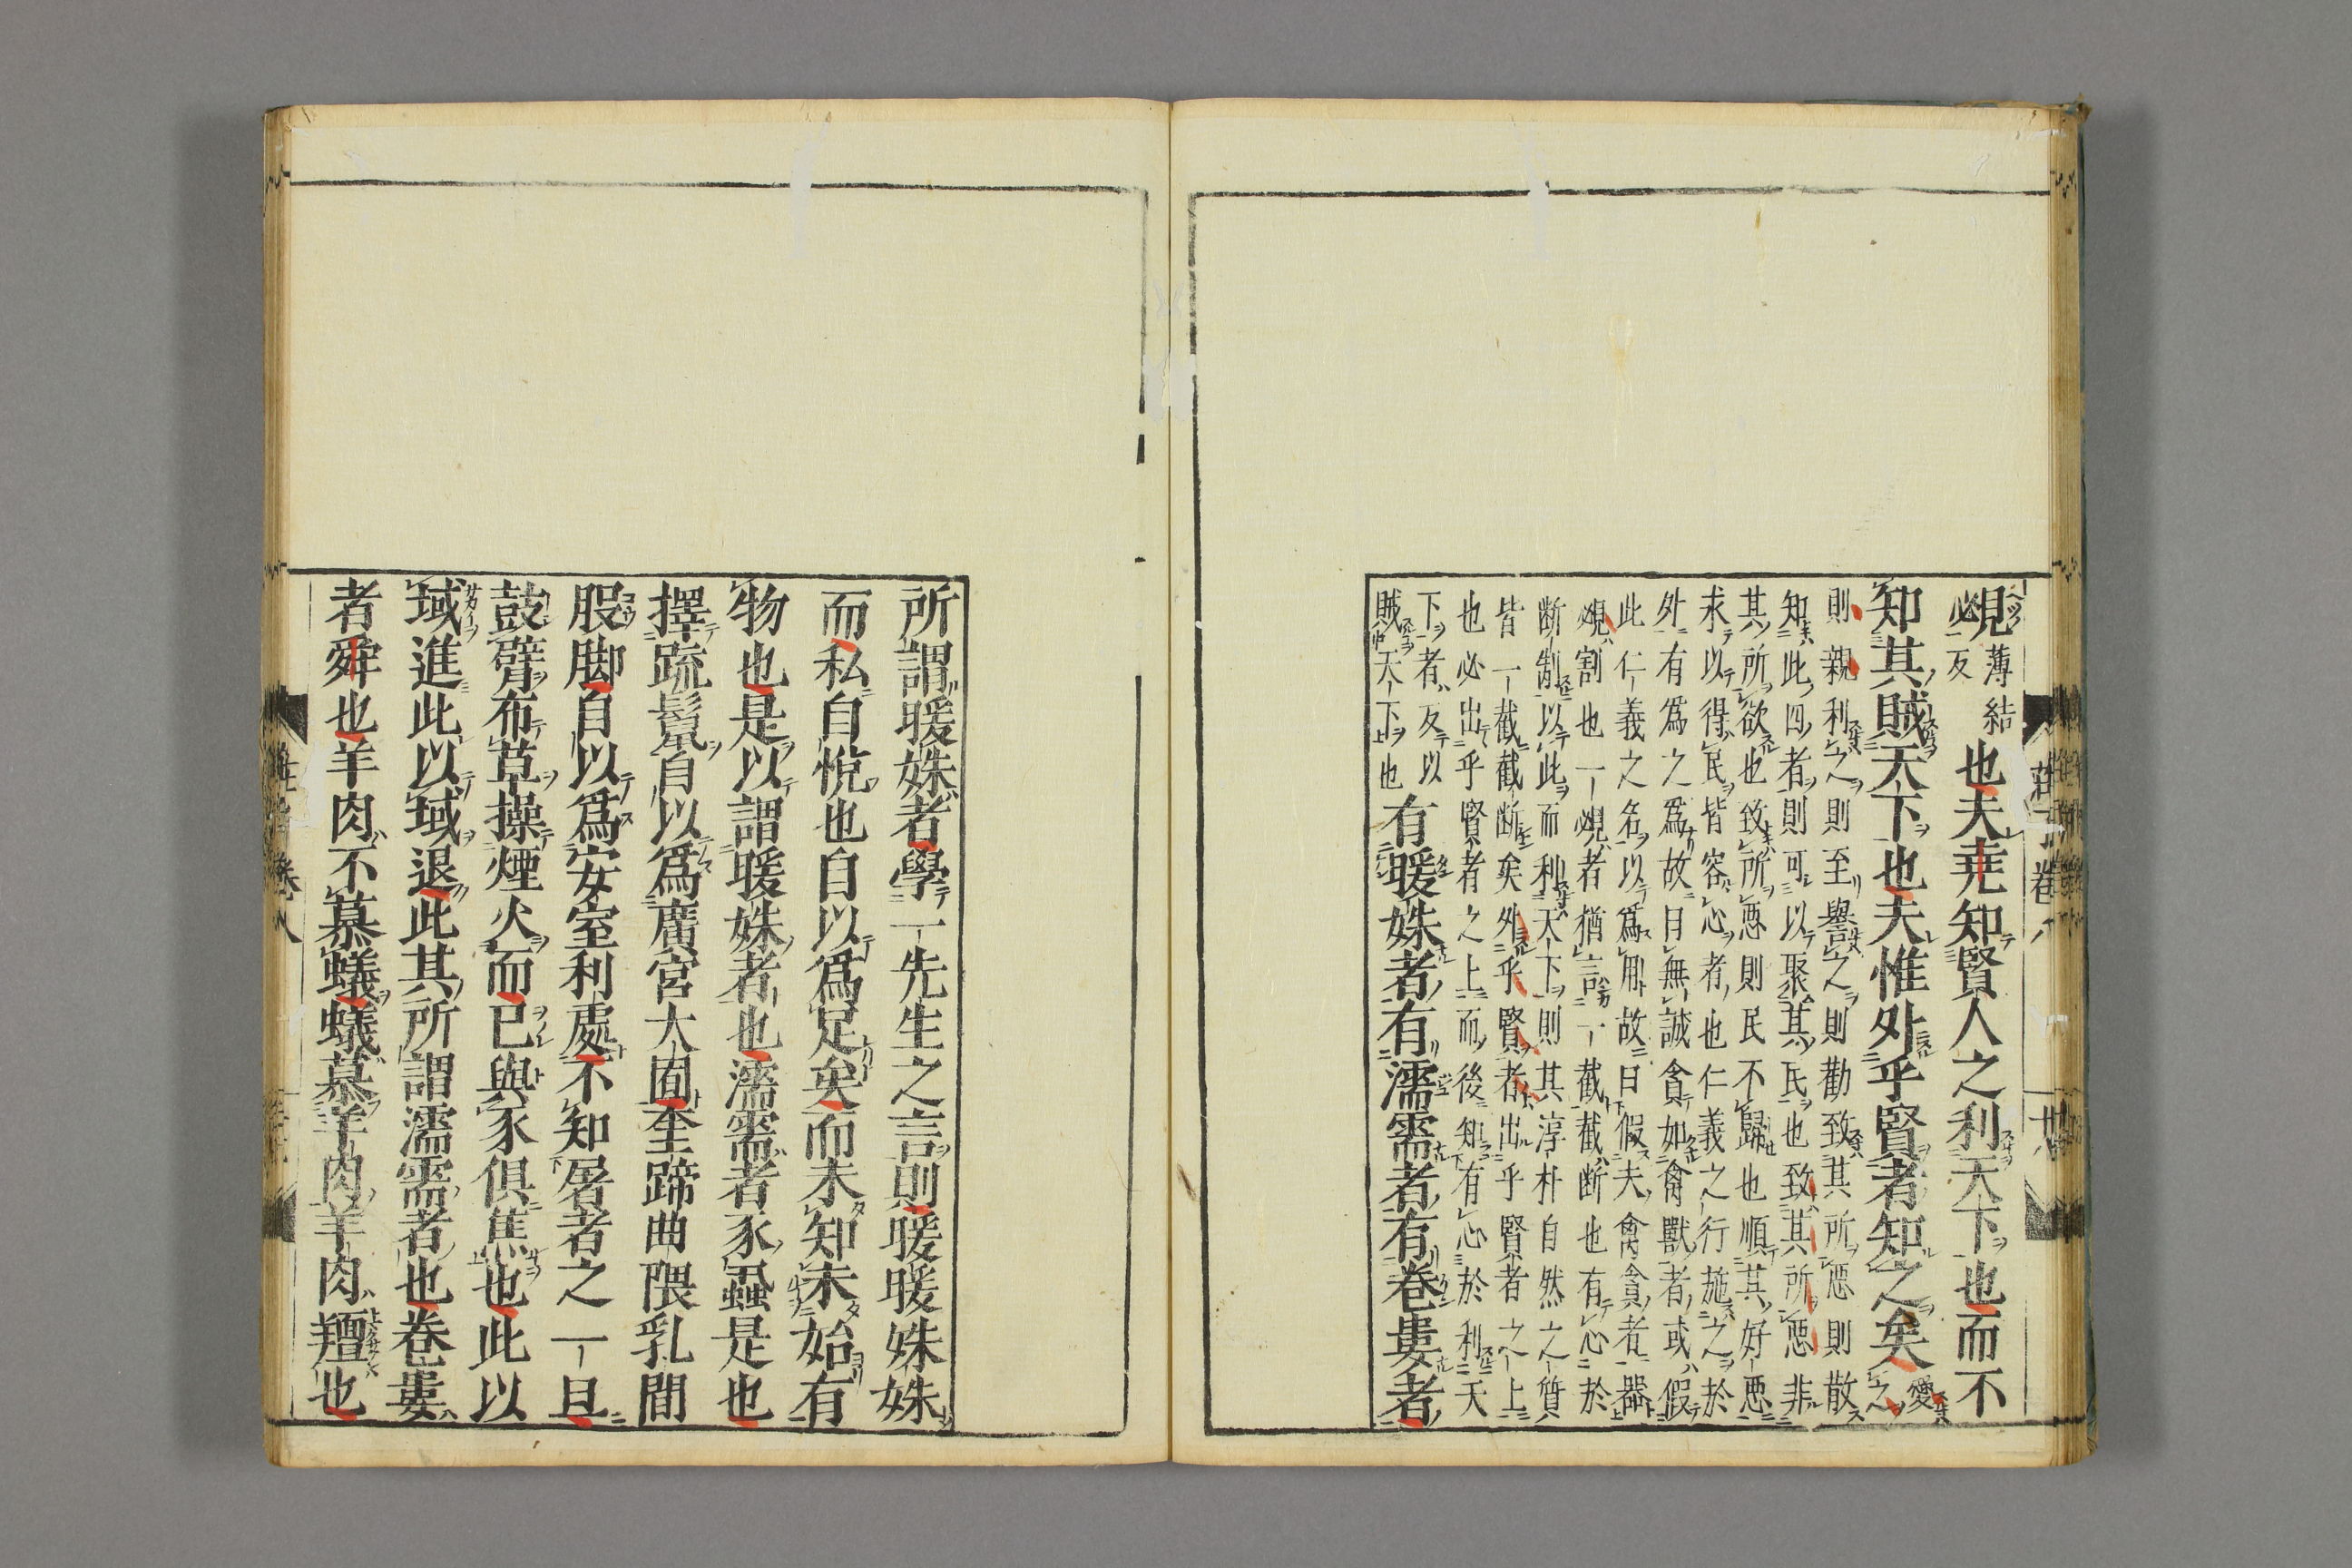 覕薄結必反也夫堯知賢人之利天下也而不
知其賊天下也夫惟外乎賢者知之矣愛之
則親利之則至譽之則勸致其所惡則散
知此四者則可以聚其民也致其所惡非
其所欲也致所惡則民不歸也順其好惡
求以得民皆容心者也仁義之行施之於
外有為之為故曰無誠貪如禽獸者或假
此仁義之名以為用故曰假夫禽貪者器
覕割也一覕者猶言一截截断也有心於
断制以此而利天下則其淳朴自然之質
皆一截截断矣外乎賢者出乎賢者之上
也必出乎賢者之上而後知有心於利天
下者反以
賊天下也有暖姝者有濡需者有卷婁者
所謂暖姝者學一先生之言則暖暖姝姝
而私自悅也自以爲足矣而未知未始有
物也是以謂暖姝者也濡需者豕蝨是也
擇疏鬣自以爲廣宮大囿奎蹄曲隈乳間
股脚自以爲安室利處不知屠者之一旦
鼓臂布草操煙火而已與豕俱焦也此以
域進此以域退此其所謂濡需者也卷婁
者舜也羊肉不慕蟻蟻慕羊肉羊肉羶也